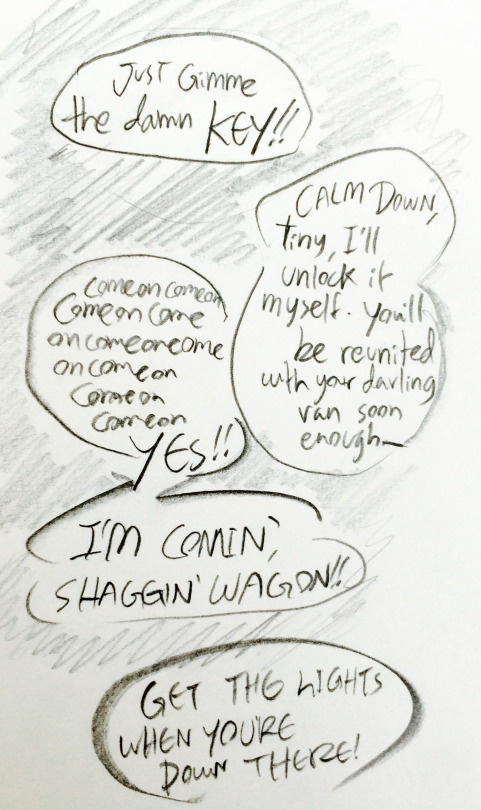 JUST Gimme
the damn KEY!!
CALM DOWN,
tiny, I'll
unlock it
myself. You'll
be reunited
with your darling
van soon
enough—
comeoncomeon
Comeoncome
oncomeoncome
oncomeon
Comeon
comeon
YES!!
I'M COMIN',
SHAGGIN' WAGON!!
GET THE LIGHTS
WHEN YOU'RE
DOWN THERE!